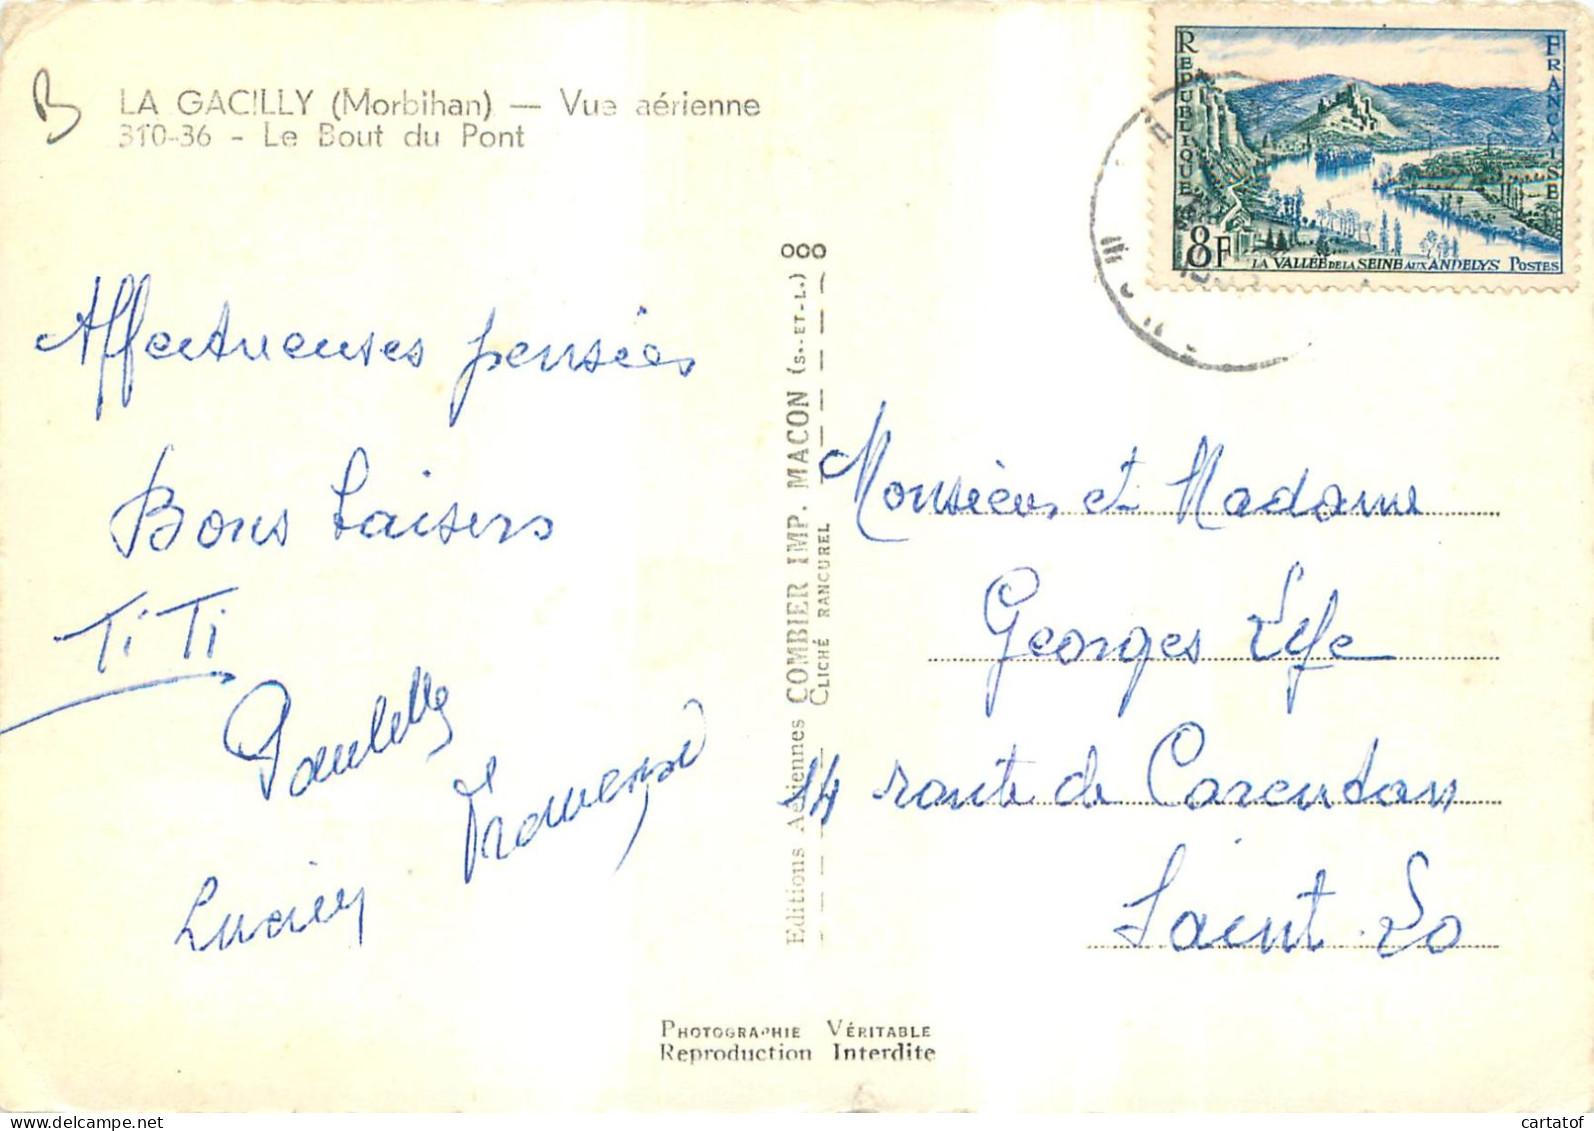 B
LA GACILLY (Morbihan) — Vue aérienne
310-36 - Le Bout du Pont
RÉPUBLIQUE
FRANÇAISE
8F
LA VALLÉE DE LA SEINE AUX ANDELYS POSTES
Affectueuses pensées
Bons baisers
TiTi
Paulette
Lucien
Editions Aériennes COMBIER IMP. MACON (S.-ET-L.)
CLICHÉ RANCUREL
Monsieur et Madame
Georges
14 route de Carentan
Saint-Lo
PHOTOGRAPHIE VÉRITABLE
Reproduction Interdite
cartatof